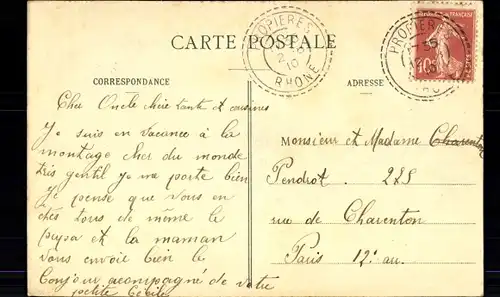 CARTE POSTALE
PROPIERES
RHONE
PROPIERES
10
CORRESPONDANCE
ADRESSE
Cher Oncle chère tante et cousines
Je suis en vacance à la
montagne cher du monde
très gentil je me porte bien
je pense que vous en
êtes tous de même le
papa et la maman
vous envoie bien le
Bonjour acompagné de votre
petite Cécile
Monsieur et Madame Charenton
Pendrot . 225
rue de Charenton
Paris 12e au.